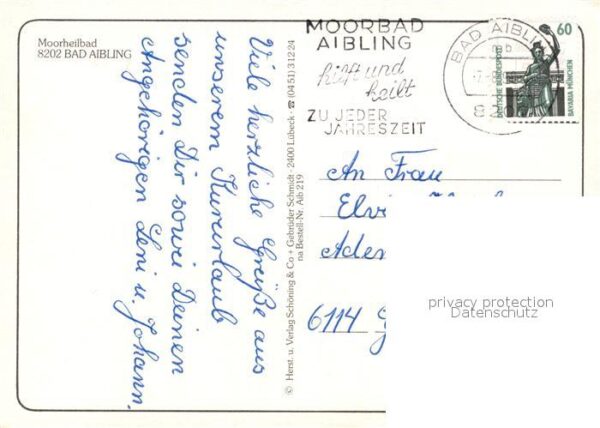 Moorheilbad
8202 BAD AIBLING
Viele herzliche Grüße aus
unserem Kururlaub
senden Dir sowie Deinen
Angehörigen Leni u. Johann.
© Herst. u. Verlag Schöning & Co + Gebrüder Schmidt · 2400 Lübeck · ☎ (04 51) 3 12 24
na Bestell-Nr. Aib 219
MOORBAD
AIBLING
hilft und
heilt
ZU JEDER
JAHRESZEIT
BAD AIBLING
60
DEUTSCHE BUNDESPOST
BAVARIA MÜNCHEN
An Frau
6114
privacy protection
Datenschutz